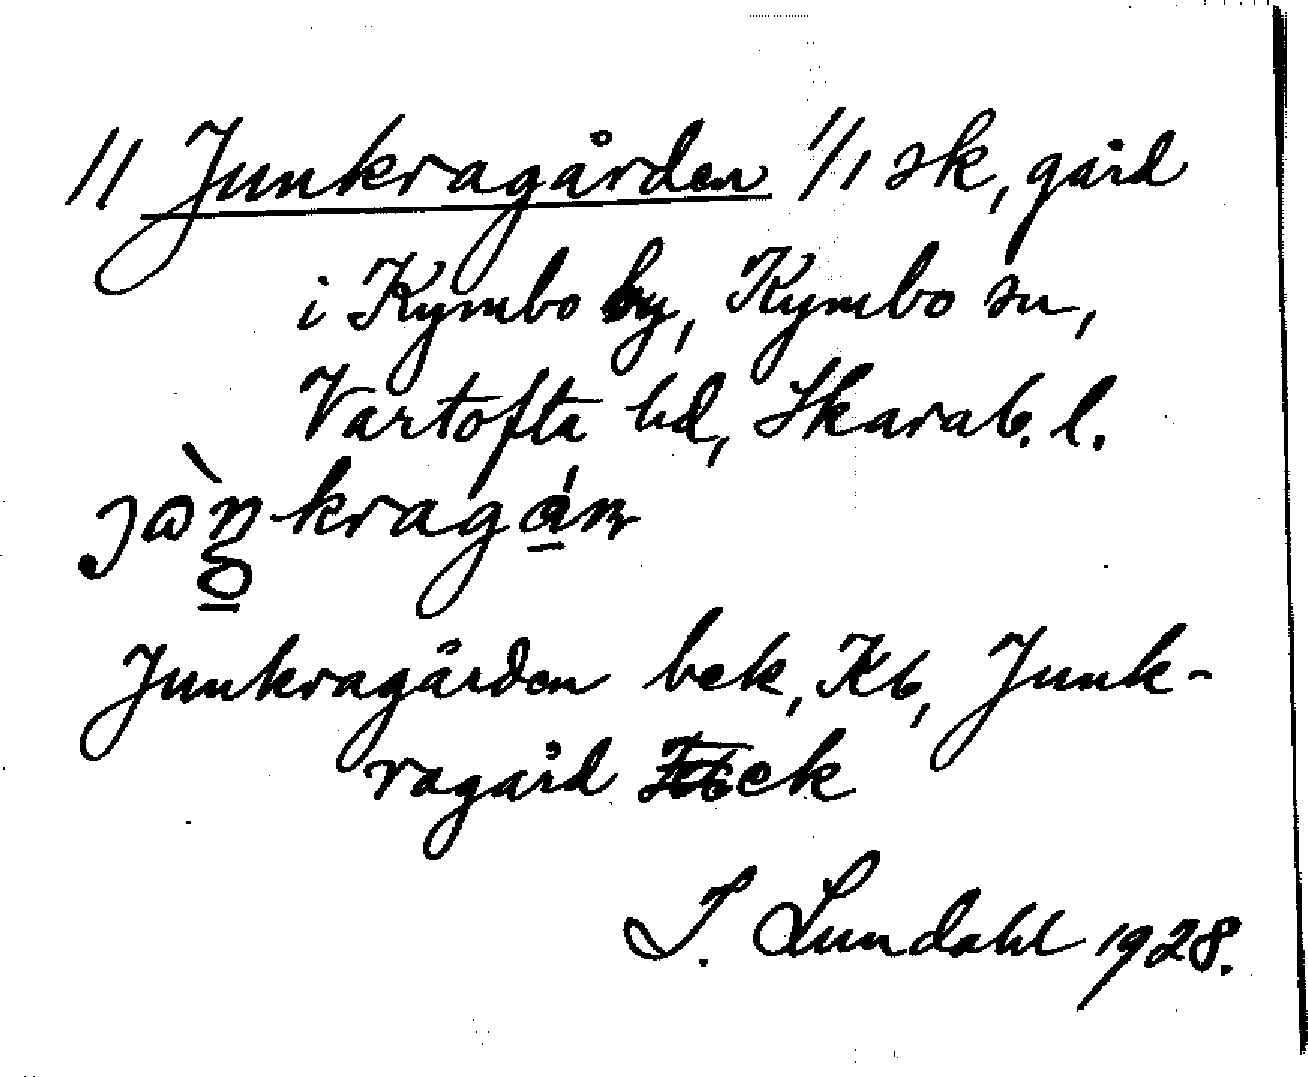 // Junkragården 1/1 sk, gård
i Kymbo by, Kymbo sn,
Vartofta hd, Skarab. l.
Junkragården bek, Kb, Junk-
ragård Eck
I. Lundahl 1928.